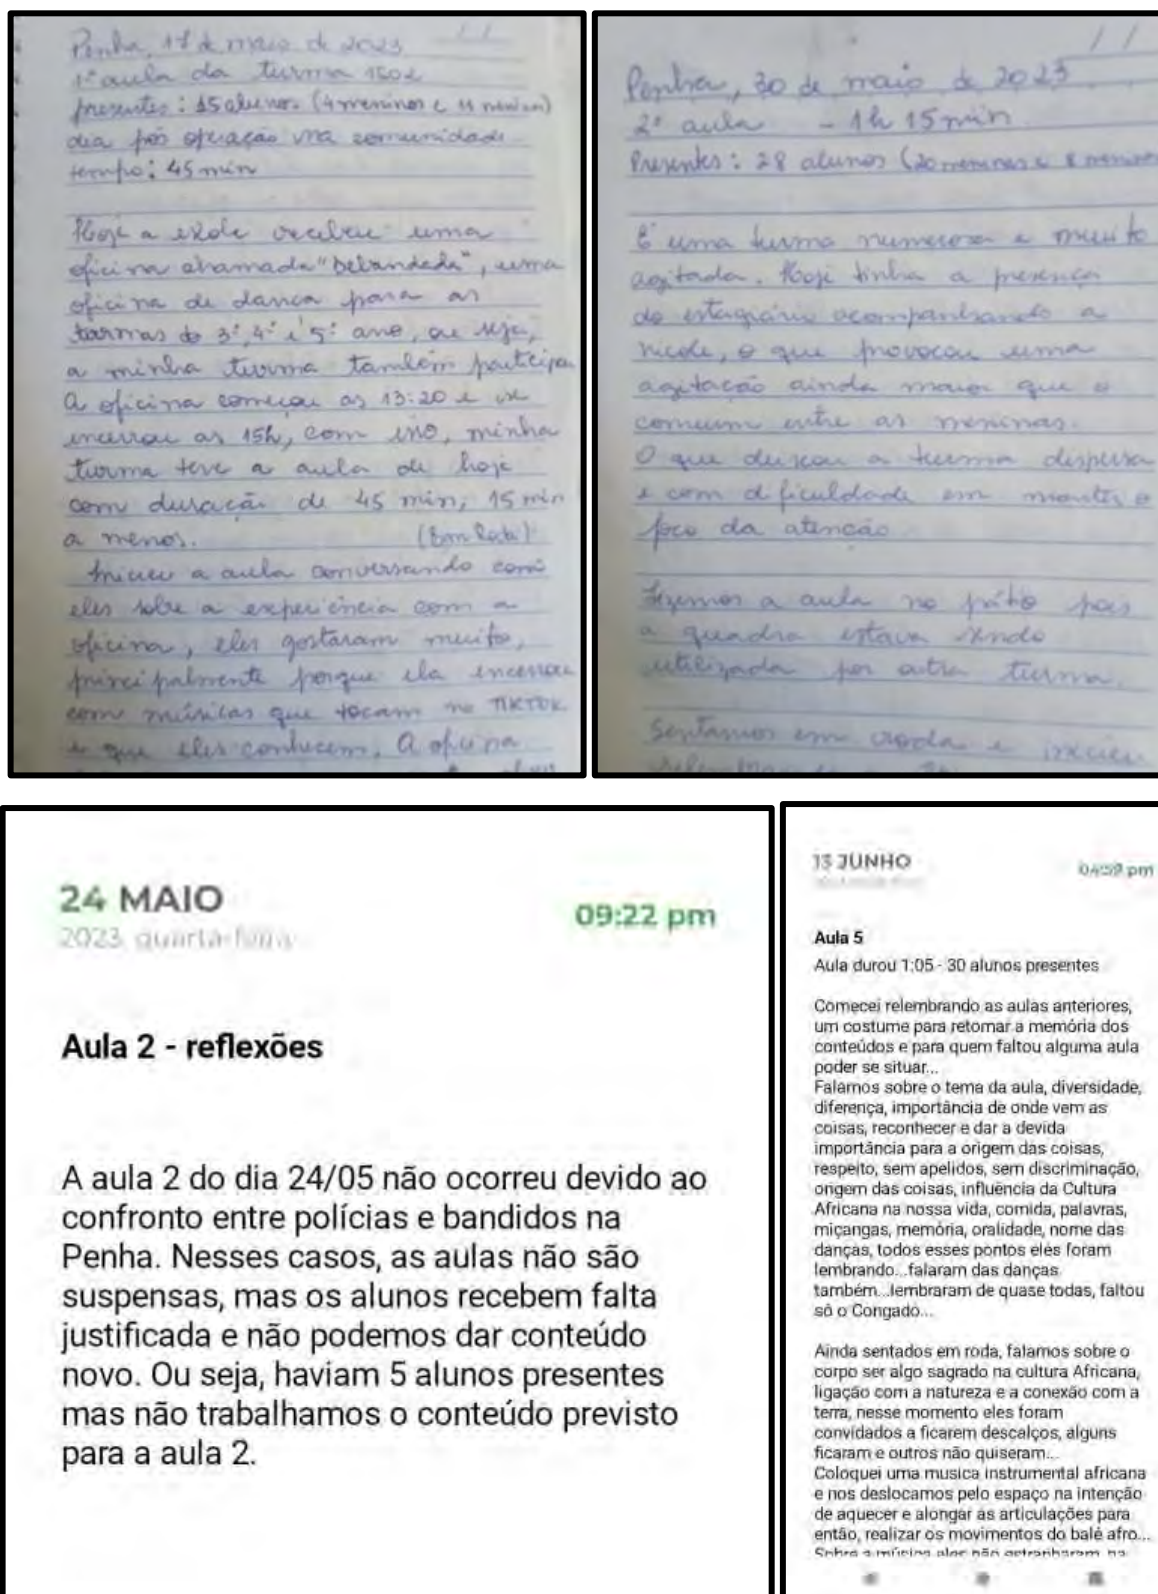 Penha, 17 de maio de 2023
1ª aula da turma 1502
presentes: 15 alunos (4 meninos e 11 meninas)
dia pós operação na comunidade
tempo: 45 min
Hoje a escola recebeu uma
oficina chamada "Debandada", uma
oficina de dança para as
turmas do 3º, 4º e 5º ano, ou seja,
a minha turma também participa
A oficina começou as 13:20 e se
encerrou as 15h, com isso, minha
turma teve a aula de hoje
com duração de 45 min, 15 min
a menos.
Iniciei a aula conversando com
eles sobre a experiência com a
oficina, eles gostaram muito,
principalmente porque ela encerrou
com músicas que tocam no TIKTOK
e que eles conhecem. A oficina
Penha, 30 de maio de 2023
2ª aula - 1h 15 min
Presentes: 28 alunos (20 meninas e 8 meninos
É uma turma numerosa e muito
agitada. Hoje tinha a presença
do estagiário acompanhando a
nicole, o que provocou uma
agitação ainda maior que o
comum entre as meninas.
O que deixou a turma dispersa
e com dificuldade em manter o
foco da atenção
Fizemos a aula no pátio pois
a quadra estava sendo
utilizada por outra turma.
Sentamos em roda e iniciei
24 MAIO
2023 quarta-feira
09:22 pm
Aula 2 - reflexões
A aula 2 do dia 24/05 não ocorreu devido ao
confronto entre polícias e bandidos na
Penha. Nesses casos, as aulas não são
suspensas, mas os alunos recebem falta
justificada e não podemos dar conteúdo
novo. Ou seja, haviam 5 alunos presentes
mas não trabalhamos o conteúdo previsto
para a aula 2.
13 JUNHO
04:59 pm
Aula 5
Aula durou 1:05 - 30 alunos presentes
Comecei relembrando as aulas anteriores,
um costume para retomar a memória dos
conteúdos e para quem faltou alguma aula
poder se situar...
Falamos sobre o tema da aula, diversidade,
diferença, importância de onde vem as
coisas, reconhecer e dar a devida
importância para a origem das coisas,
respeito, sem apelidos, sem discriminação,
origem das coisas, influência da Cultura
Africana na nossa vida, comida, palavras,
miçangas, memória, oralidade, nome das
danças, todos esses pontos eles foram
lembrando...falaram das danças
também...lembraram de quase todas, faltou
só o Congado...
Ainda sentados em roda, falamos sobre o
corpo ser algo sagrado na cultura Africana,
ligação com a natureza e a conexão com a
terra, nesse momento eles foram
convidados a ficarem descalços, alguns
ficaram e outros não quiseram...
Coloquei uma musica instrumental africana
e nos deslocamos pelo espaço na intenção
de aquecer e alongar as articulações para
então, realizar os movimentos do balé afro...
Sobre a música eles não estranharam, na